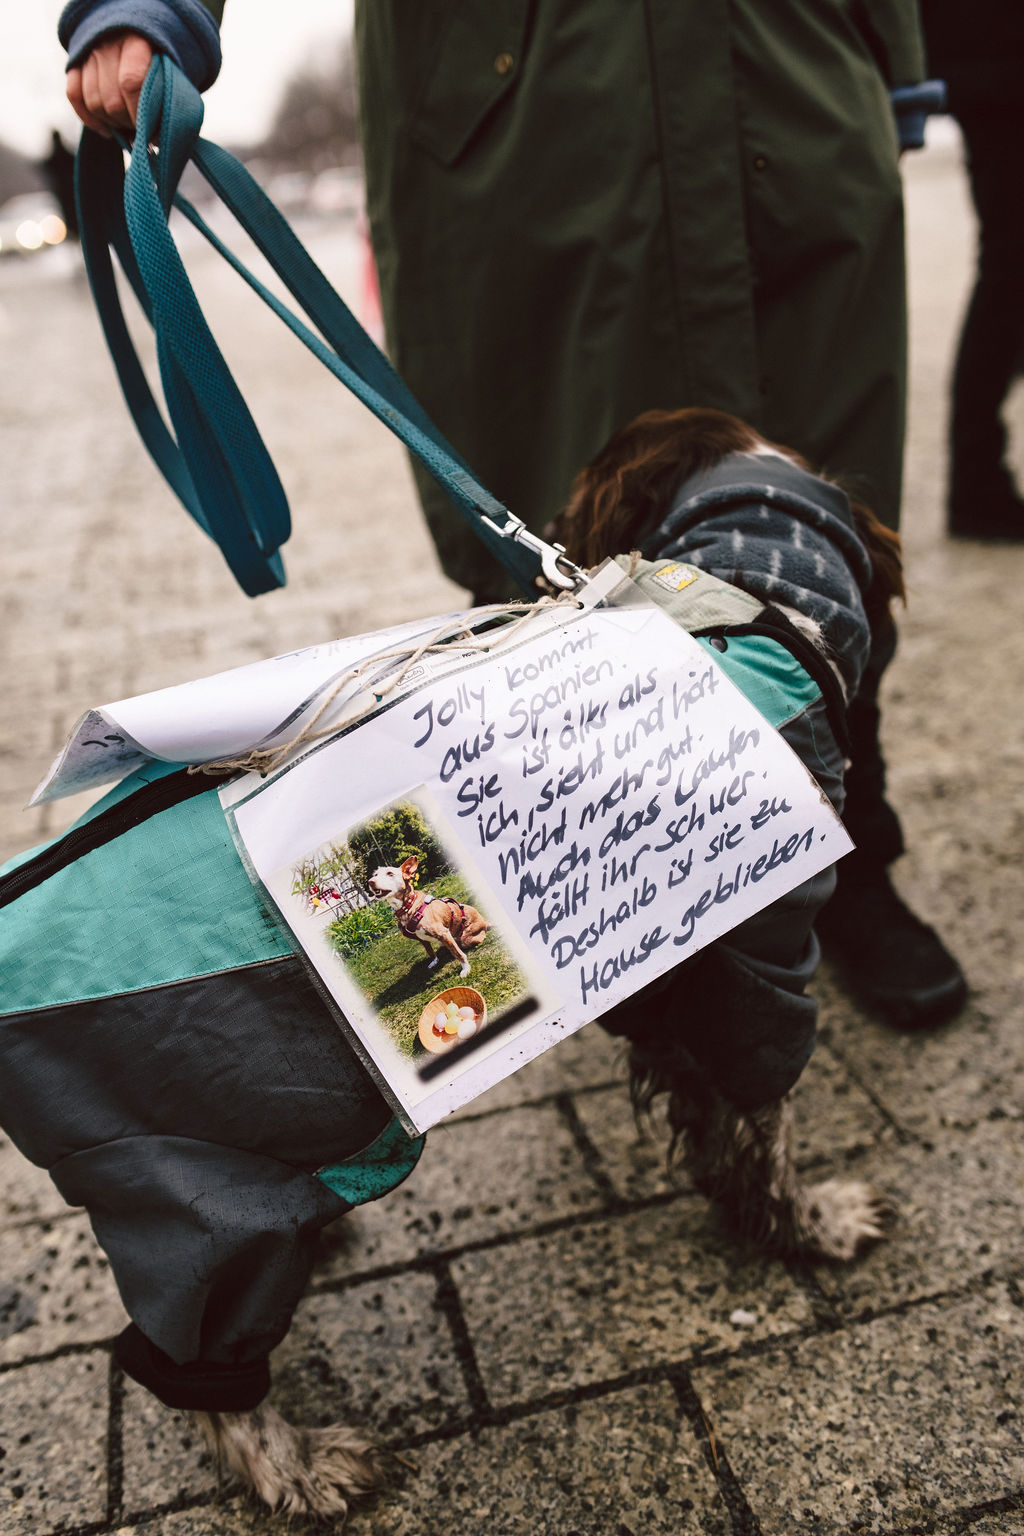 Jolly kommt
aus Spanien.
Sie ist älter als
ich, sieht und hört
nicht mehr gut.
Auch das Laufen
fällt ihr schwer.
Deshalb ist sie zu
Hause geblieben.